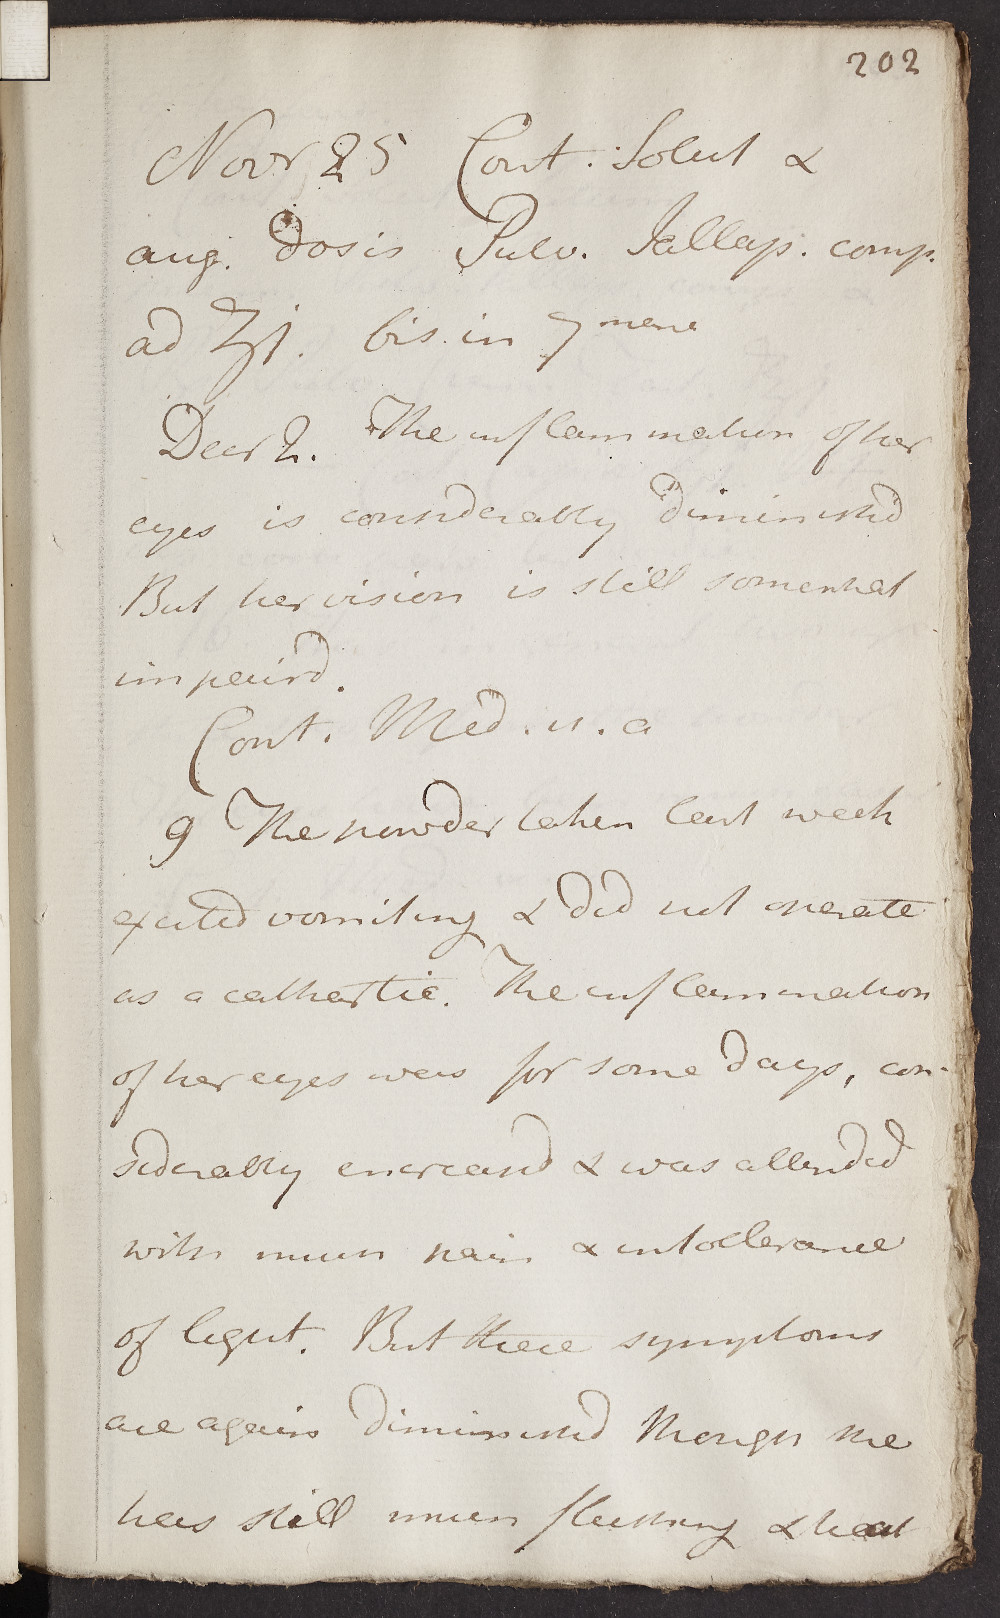 202
Novr 25 Cont. Solut &
aug. dosis Pulv. Jallap. comp.
ad ʒj. bis in 7mana
Decr 2. The inflammation of her
eyes is considerably diminishd
But her vision is still somewhat
impaird.
Cont. Med. u. a
9 The powder taken last week
excited vomiting & did not operate
as a cathartic. The inflammation
of her eyes was for some days, con-
siderably encreasd & was attended
with much pain & intollerance
of light. But these symptoms
are again diminishd though she
has still much flushing & heat